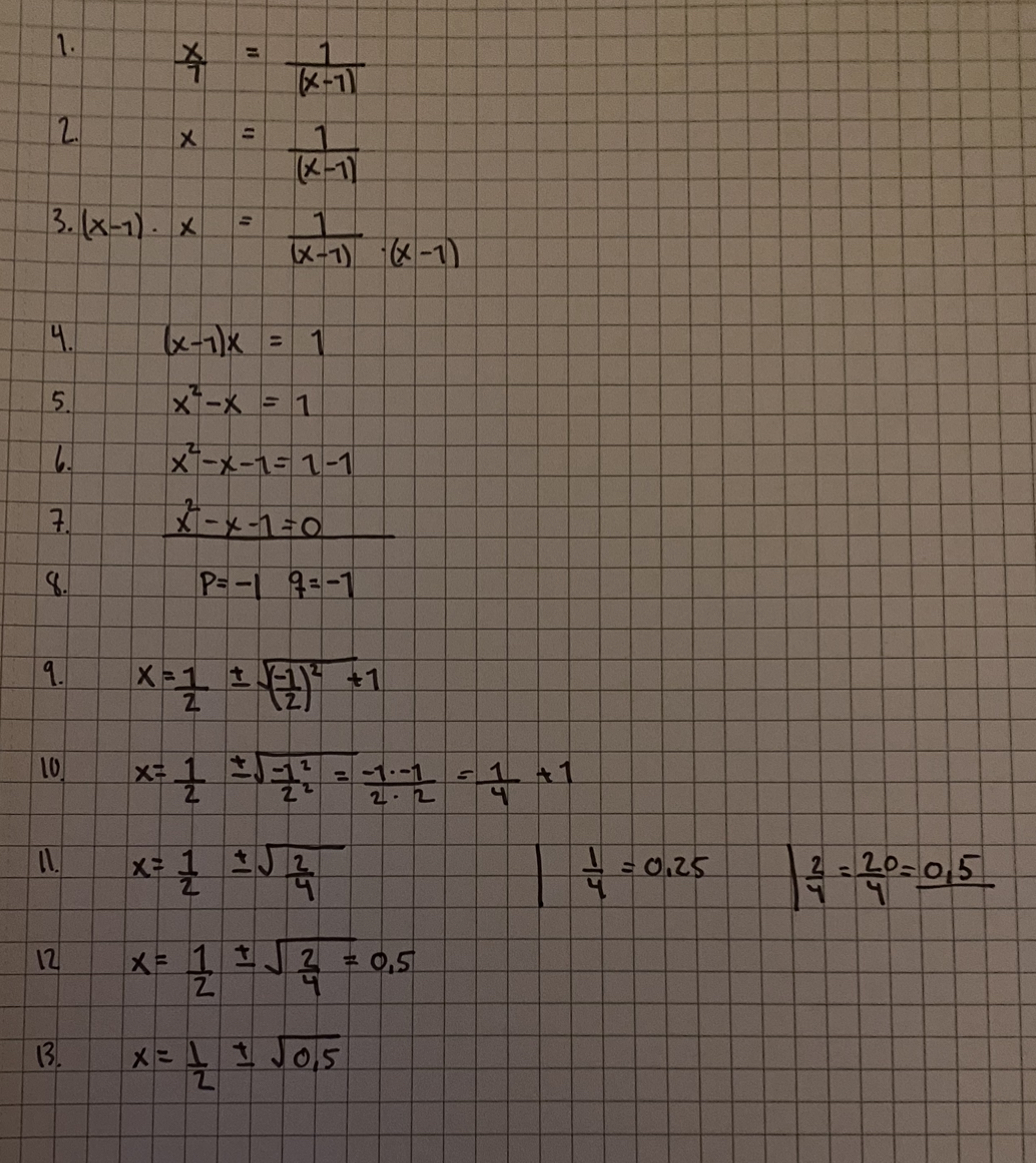 1. x/1 = 1/(x-1)
2. x = 1/(x-1)
3. (x-1) · x = 1/(x-1) · (x-1)
4. (x-1)x = 1
5. x² - x = 1
6. x² - x - 1 = 1 - 1
7. x² - x - 1 = 0
8. p = -1 q = -1
9. x = 1/2 ± √(-1/2)² + 1
10. x = 1/2 ± √-1²/2² = -1·-1/2·2 = 1/4 + 1
11. x = 1/2 ± √2/4 | 1/4 = 0.25 | 2/4 = 20/4 = 0,5
12 x = 1/2 ± √2/4 = 0,5
13. x = 1/2 ± √0,5